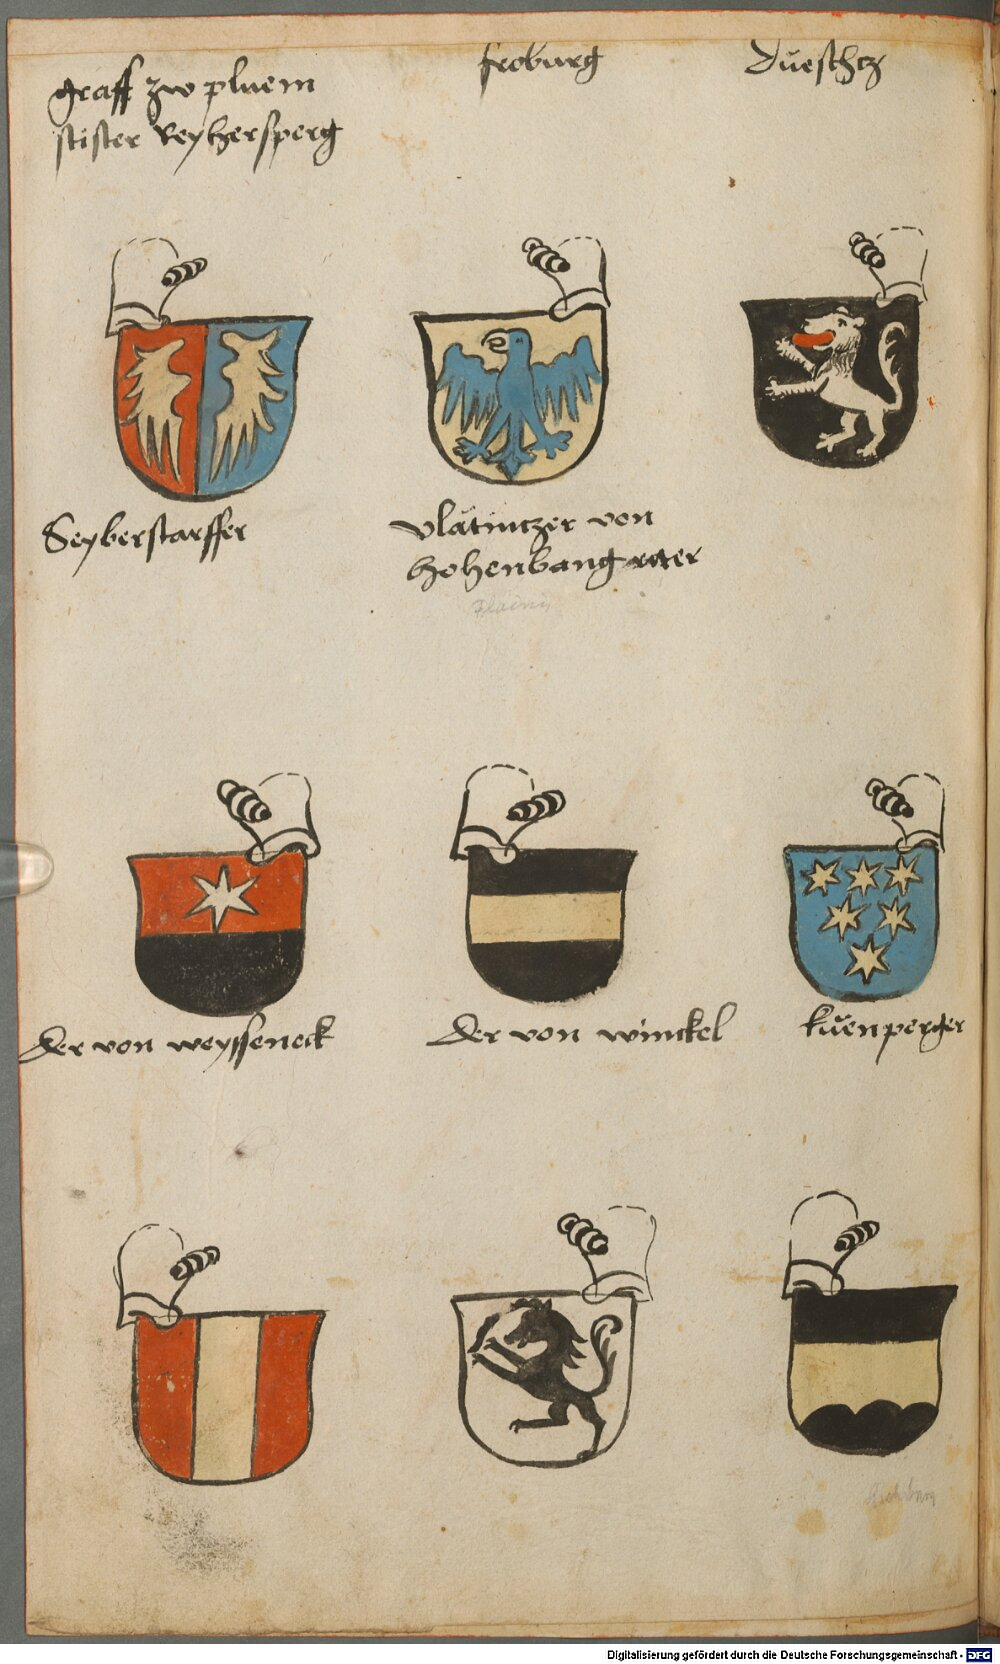 graff zw pluem
stifter Reyhersperg
froburg
Dueschtz
Seyberstarffer
vlätinczer von
hohenbang
der von weysseneck
der von winckel
kuenperger
Digitalisierung gefördert durch die Deutsche Forschungsgemeinschaft - DFG